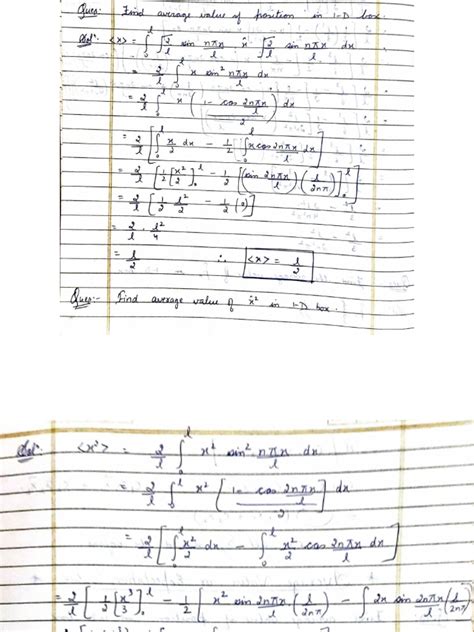 Ques:- Find average value of position in 1-D box.
Solⁿ: <x> = ∫₀ˡ √(2/l) sin nπx/l · x̂ · √(2/l) sin nπx/l dx
= 2/l ∫₀ˡ x sin² nπx/l dx
= 2/l ∫₀ˡ x ( (1 - cos 2nπx/l) / 2 ) dx
= 2/l [ ∫₀ˡ x/2 dx - 1/2 ∫₀ˡ x cos 2nπx/l dx ]
= 2/l [ 1/2 [x²/2]₀ˡ - 1/2 [ (sin 2nπx/l) (l/2nπ) ]₀ˡ ]
= 2/l [ 1/2 l²/2 - 1/2 (0) ]
= 2/l · l²/4
= l/2 ∴ <x> = l/2
Ques:- Find average value of x̂² in 1-D box.
Solⁿ: <x²> = 2/l ∫₀ˡ x² sin² nπx/l dx
= 2/l ∫₀ˡ x² [ (1 - cos 2nπx/l) / 2 ] dx
= 2/l [ ∫₀ˡ x²/2 dx - ∫₀ˡ x²/2 cos 2nπx/l dx ]
= 2/l [ 1/2 [x³/3]₀ˡ - 1/2 [ x² sin 2nπx/l · (l/2nπ) - ∫ 2x sin 2nπx/l (l/2nπ)